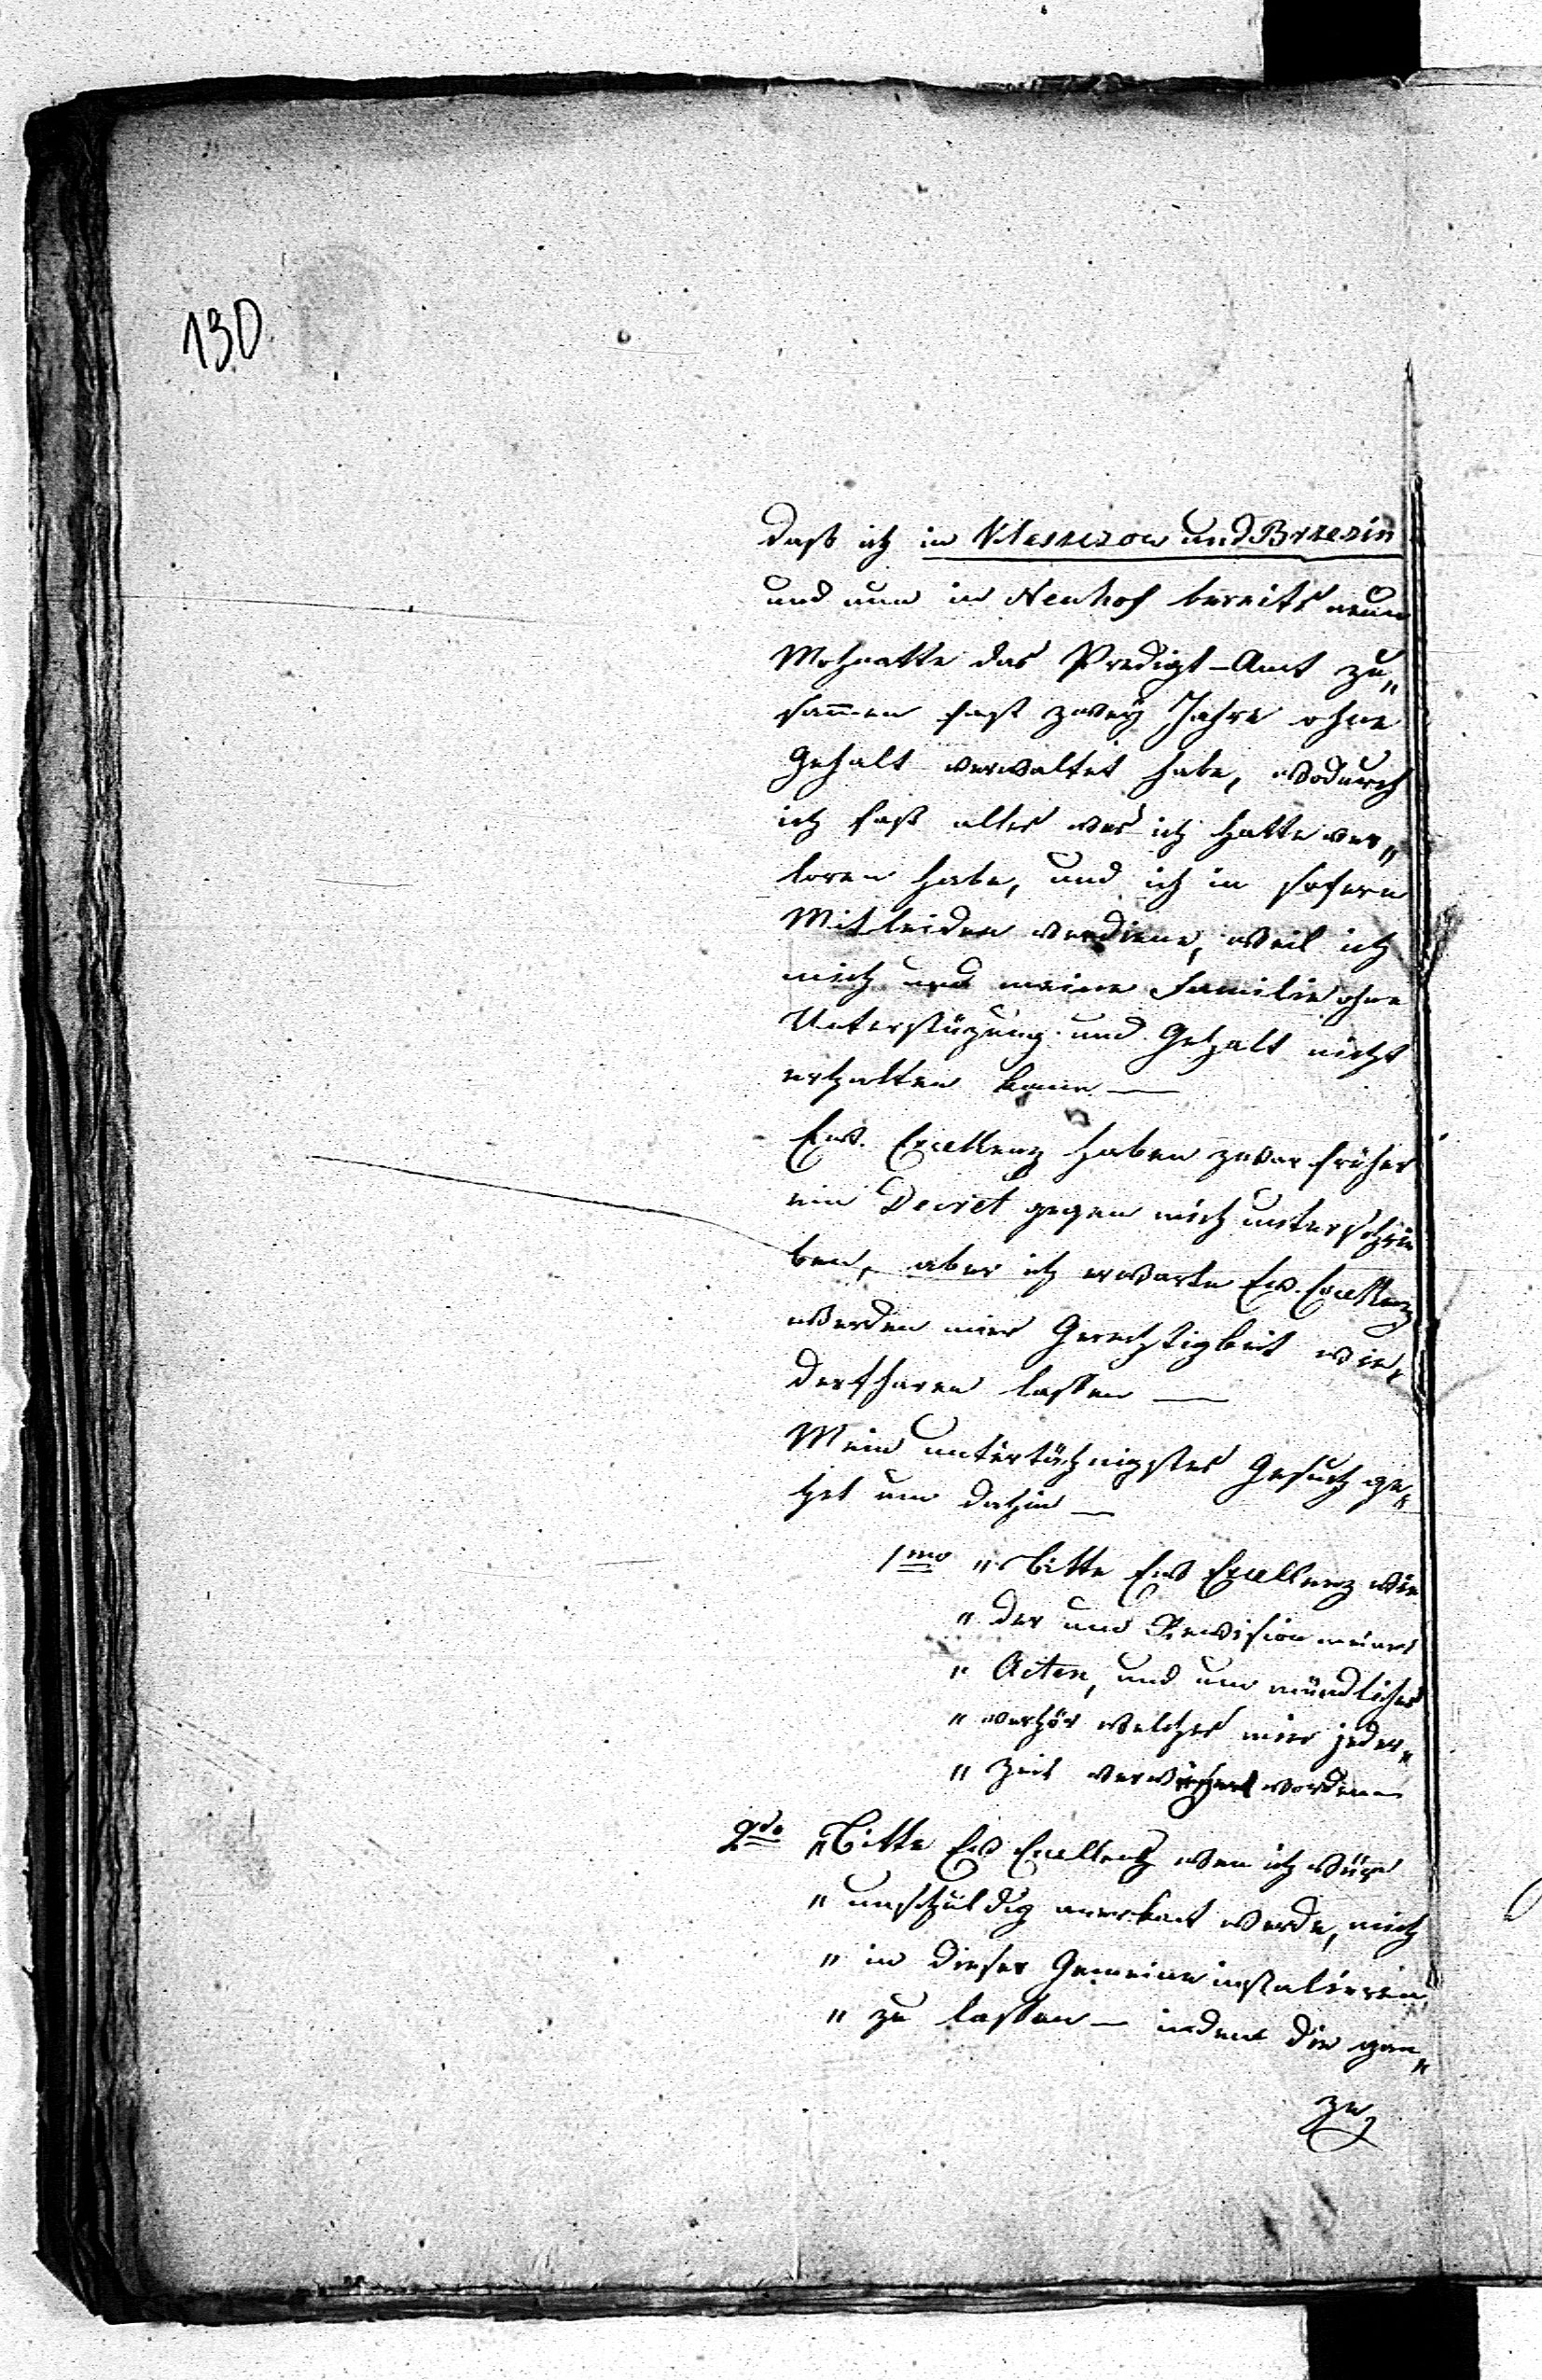 130
daß ich in Kleszczow und Brzezin
und nun in Neuhof bereits neun
Mohnatte das Predigt-Amt zu„
sam̅en fast zwey Jahre ohne
Gehalt verwaltet habe, wodurch
ich fast alles was ich hatte ver„
loren habe, und ich in sofern
Mitleiden verdiene, weil ich
mich und meine Familie ohne
Unterstüzung und Gehalt nicht
erhalten kann —
Ew. Excellenz haben zwar früher
ein Decret gegen mich unterschrie
ben, aber ich erwarte Ew. Excellenz
werden mir Gerechtigkeit wie„
derfharen lassen —
Mein untertähnigstes Gesuch ge„
het um dahin —
1mo „ bitte Ew Excellenz wie
„ der um Revision meiner
„ Acten, und um mündliches
„ verhör welches mir jeder„
„ zeit worden
2do „ Bitte Ew Excellentz wen ich
„ unschuldig anerkant werde, mich
„ in dieser Gemeine instaliren
„ zu lassen — indem die gan„
ze